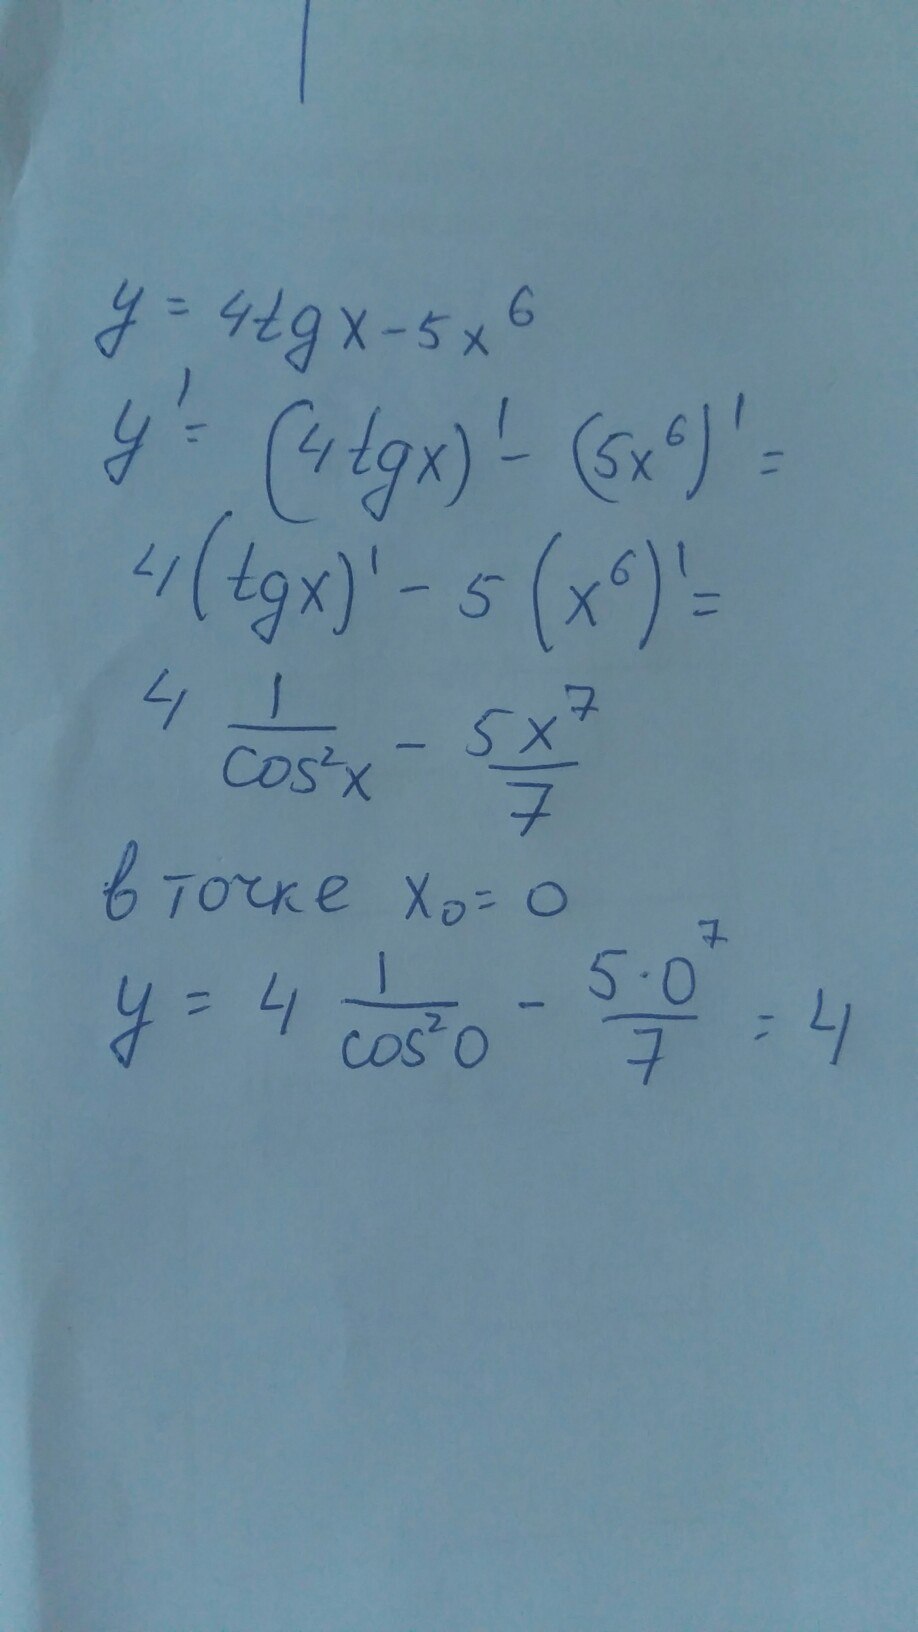 y = 4tgx - 5x⁶
y' = (4tgx)' - (5x⁶)' =
4(tgx)' - 5(x⁶)' =
4 1/cos²x - 5x⁷/7
в точке x₀ = 0
y = 4 1/cos²0 - 5·0⁷/7 = 4